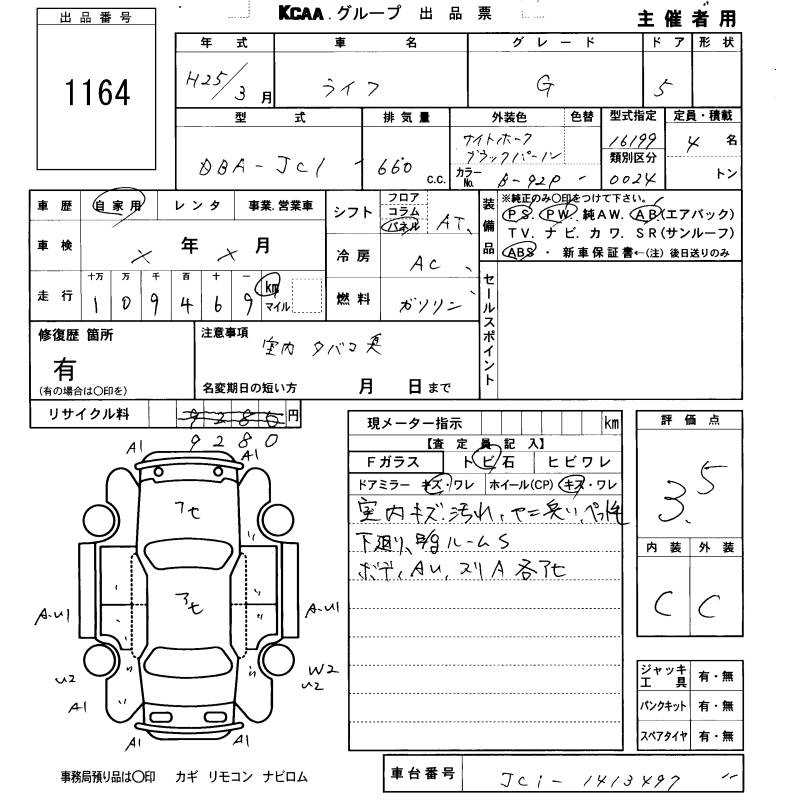 出品番号
1164
KCAA.グループ 出品票
主催者用
年式 車名 グレード ドア 形状
H25/3月 ライフ G 5
型式 排気量 外装色 色替 型式指定 定員・積載
DBA-JC1 660 c.c. ナイトホーク ブラックパール 16199 4 名
カラーNo. B-92P 類別区分 0024 トン
車歴 自家用 レンタ 事業.営業車
車検 × 年 × 月
走行 十万 万 千 百 十 一 km マイル
1 0 9 4 6 9
シフト フロア コラム パネル AT
冷房 AC
燃料 ガソリン
装備品 ※純正のみ○印をつけて下さい。
PS. PW. 純AW. AB(エアバック)
TV. ナビ. カワ. SR(サンルーフ)
ABS・新車保証書←(注)後日送りのみ
セールスポイント
修復歴 箇所
有
(有の場合は○印を)
注意事項
室内 タバコ臭
名変期日の短い方 月 日まで
リサイクル料 9280 円
9280
現メーター指示 km
【査定員記入】
Fガラス トビ石 ヒビワレ
ドアミラー キズ・ワレ ホイール(CP) キズ・ワレ
室内キズ.汚れ.ヤニ臭い.ペット毛
下廻り、
ルームS
ボデ、AU、スリA 各アセ
評価点
3.5
内装 外装
C C
A1
A1
アセ
アセ
A・U1
A・U1
U2
W2
U2
A1
A1
A1
A1
ジャッキ工具 有・無
パンクキット 有・無
スペアタイヤ 有・無
事務局預り品は○印 カギ リモコン ナビロム
車台番号 JC1-1413497